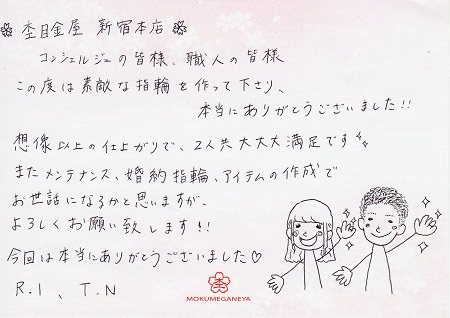 杢目金屋 新宿本店
コンシェルジュの皆様、職人の皆様
この度は素敵な指輪を作って下さり、
本当にありがとうございました!!
想像以上の仕上がりで、2人共大大大満足です
またメンテナンス、婚約指輪、アイテムの作成で
お世話になるかと思いますが、
よろしくお願い致します!!
今回は本当にありがとうございました♡
R.I、T.N
MOKUMEGANEYA